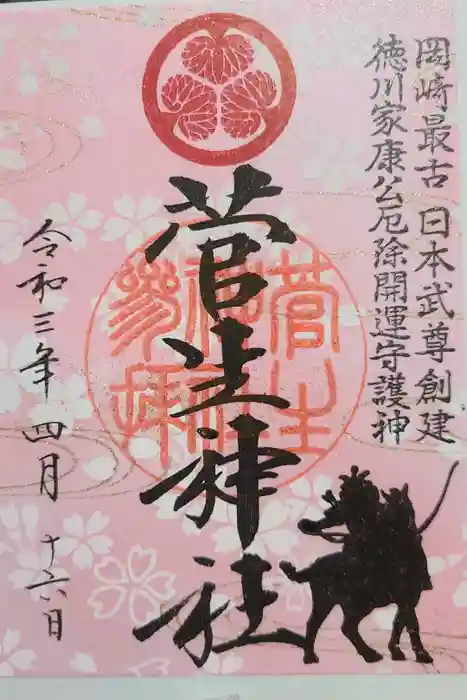 岡崎最古 日本武尊創建
徳川家康公厄除開運守護神
菅生神社
菅生神社参拝
令和三年四月十六日